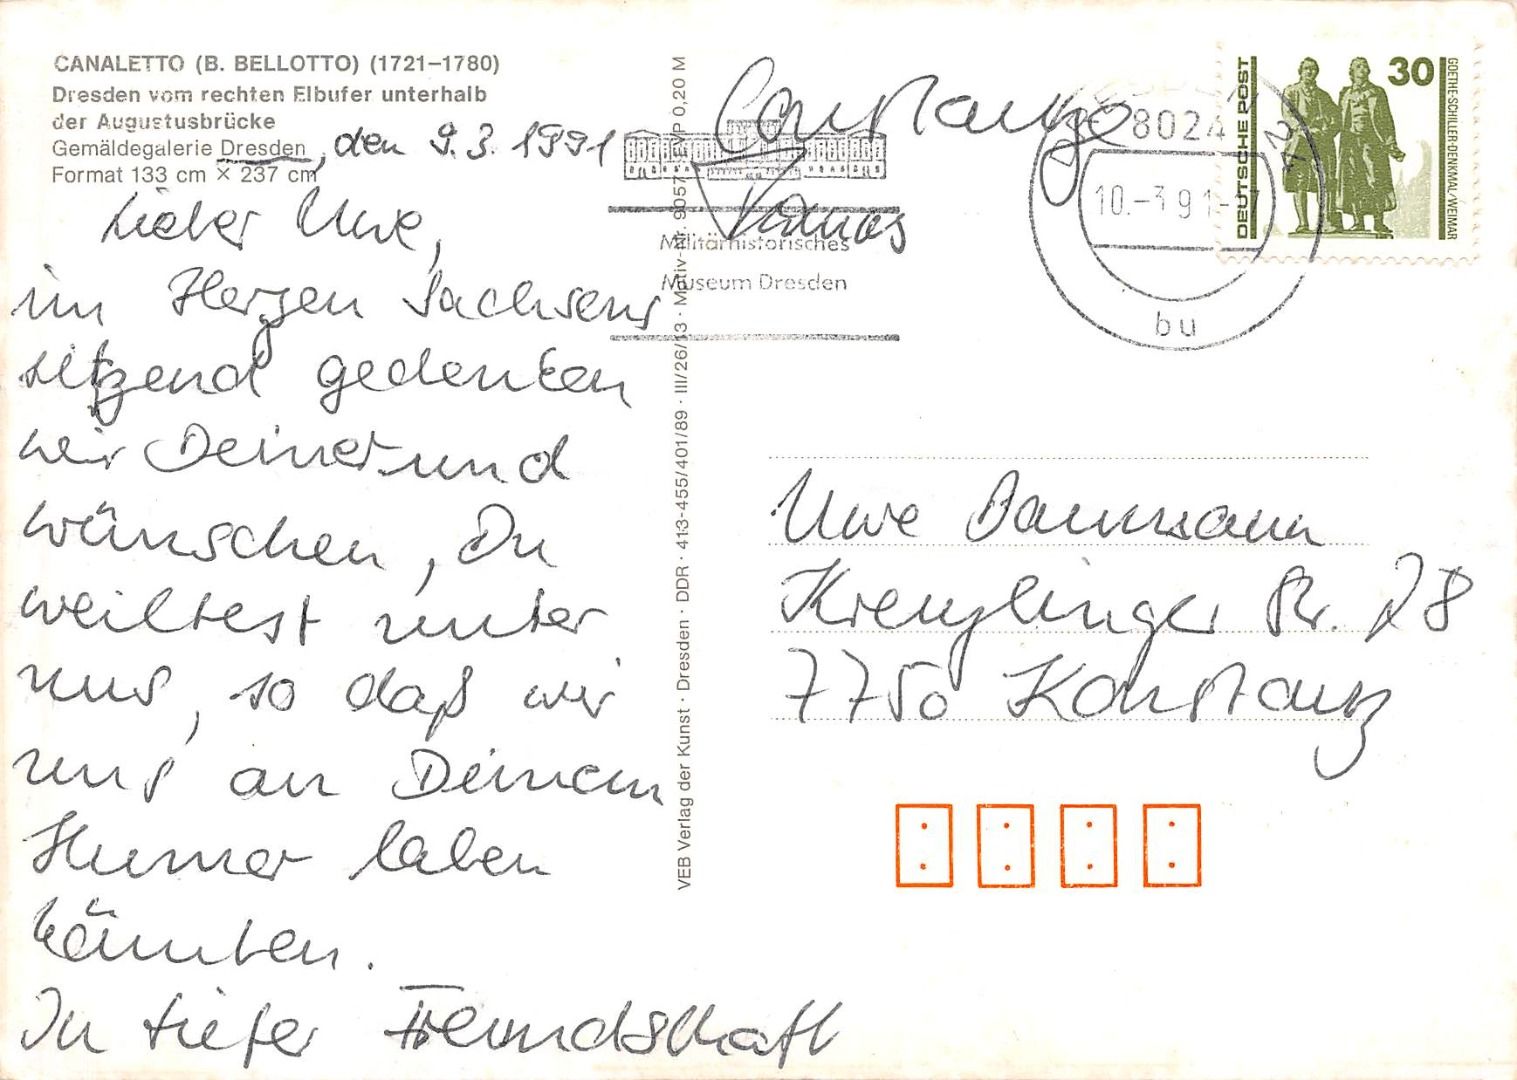 CANALETTO (B. BELLOTTO) (1721–1780)
Dresden vom rechten Elbufer unterhalb
der Augustusbrücke
Gemäldegalerie Dresden, den 9.3.1991
Format 133 cm × 237 cm
Lieber Uwe,
im Herzen Sachsens
sitzend gedenken
wir Deiner und
wünschen, Du
weiltest unter
uns, so daß wir
uns an Deinem
Humor laben
könnten.
In tiefer Freundschaft
Constanze
Thomas
VEB Verlag der Kunst · Dresden · DDR · 413-455/401/89 · III/26/13 · Motiv-Nr. 9057 EVP 0,20 M
Militärhistorisches
Museum Dresden
8024
10.-3.91-7
bu
DEUTSCHE POST
30
GOETHE-SCHILLER-DENKMAL/WEIMAR
Uwe Baumann
Kreuzlinger Str. 28
7750 Konstanz